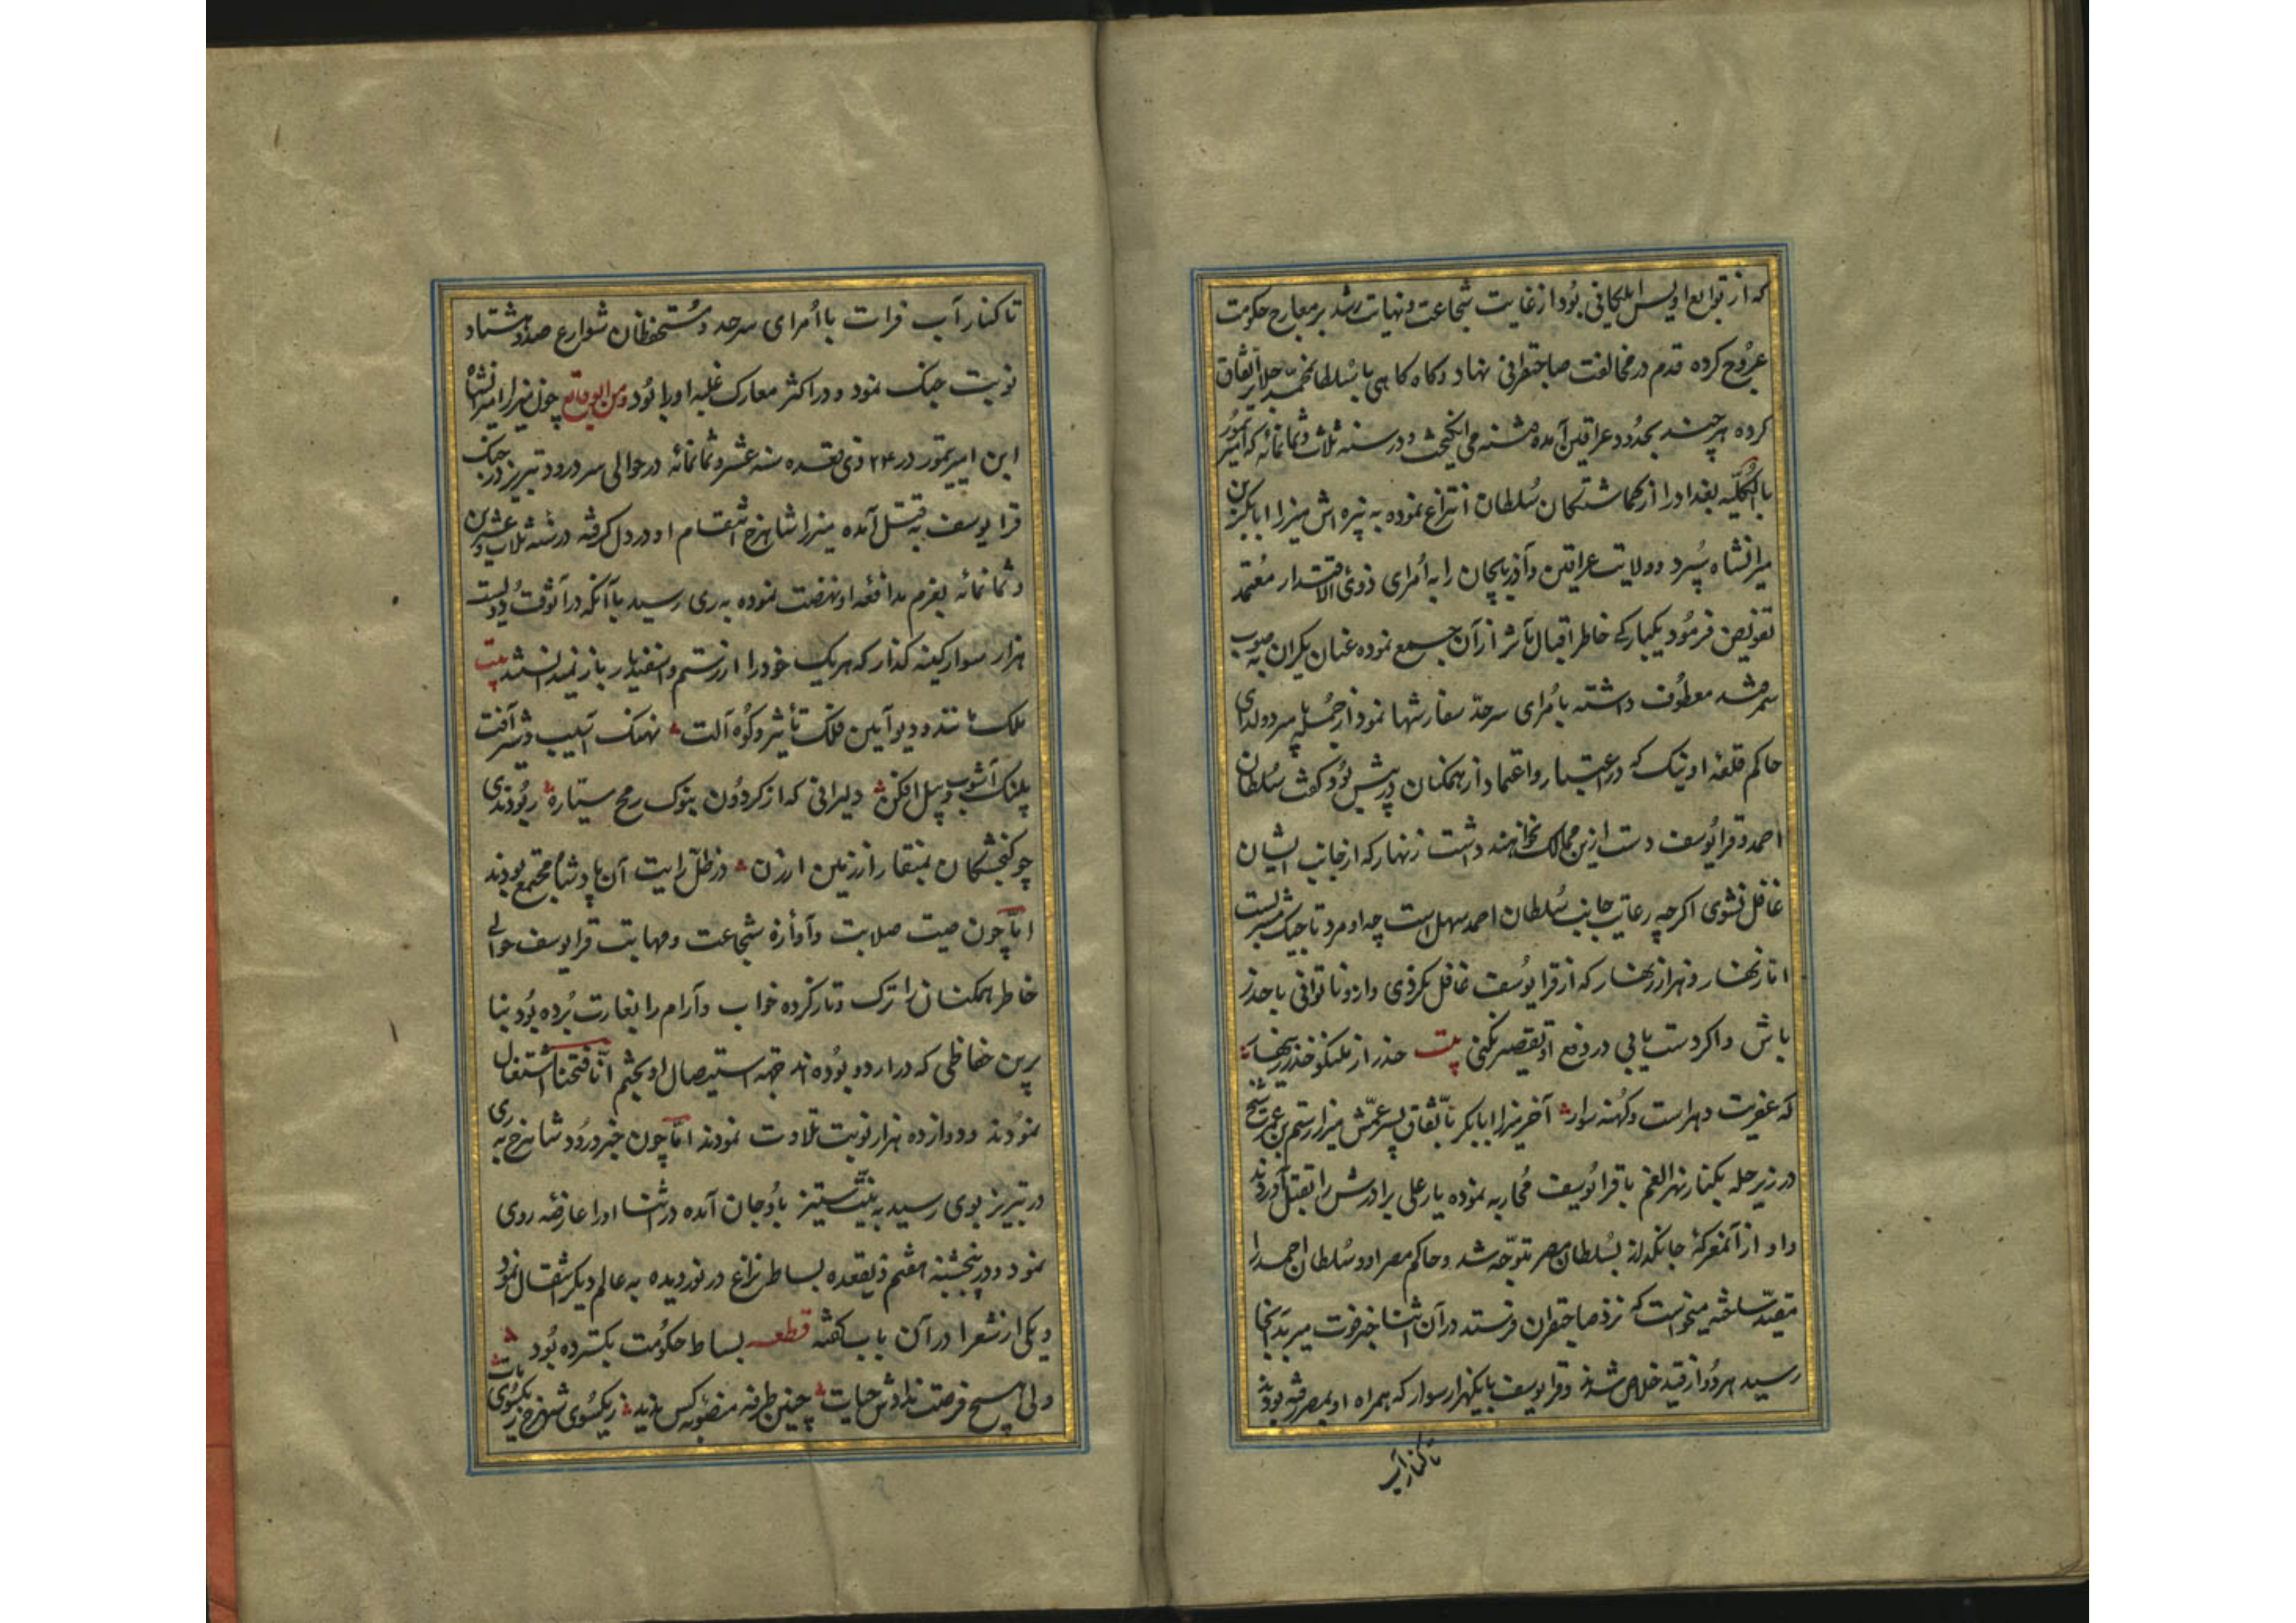 که از توابع اویس ایلکانی بود از غایت شجاعت و نهایت رشد بر معارج حکومت
عروج کرده قدم در مخالفت صاحبقرانی نهاد و کاه کاهی با سلطان احمد جلایر اتفاق
کرده هر چند بحدود عراقین آمده فتنه می انکیخت و در سنه ثلاث و ثمانمائه که امیر تیمور
بالکلیه بغداد را از کماشتکان سلطان انتزاع نموده به نبیره اش میرزا ابابکر بن
میرانشاه سپرد و ولایت عراقین و آذربایجان را به امرای ذوی الاقتدار معتمد
تفویض فرمود یکبارکی خاطر اقبال مآثر از آن جمع نموده عنان یکران به صوب
سمرقند معطوف داشته بامرای سرحد سفارشها نمود از جمله با پیر دولدای
حاکم قلعه اونیک که در اعتبار و اعتماد از همکنان در پیش بود کفت سلطان
احمد و قرا یوسف دست ازین ممالک نخواهند داشت زنهار که از جانب ایشان
غافل نشوی اکرچه رعایت جانب سلطان احمد سهل است چه او مرد تاجیک سریست
اما زنهار و هزار زنهار که از قرا یوسف غافل نکردی و از و تا توانی با حذر
باش و اکر دست یابی در دفع او تقصیر نکنی بیت حذر از ملنکو حذر زینهار
که عفریت دهر است و کهنه سوار آخر میرزا ابابکر باتفاق پسر عمش میرزا رستم بن عمر شیخ
در زیر حله بکنار نهر الغنم با قرا یوسف محاربه نموده یار علی برادرش را بقتل آوردند
و او از آن معرکه جانکداز بسلطان مصر متوجه شد و حاکم مصر او و سلطان احمد را
مقید ساخته میخواست که نزد صاحبقران فرستد در آن اثنا خبر فوت میر بدانجا
رسید هر دو از قید خلاص شدند و قرا یوسف با یکهزار سوار که همراه او بمصر رفته بودند
تا کنار آب
تا کنار آب فرات با امرای سرحد و مستحفظان شوارع صد و هشتاد
نوبت جنک نمود و در اکثر معارک غلبه او را بود و من الوقایع چون میرزا میرانشاه
ابن امیر تیمور در ۲۴ ذی قعده سنه عشر و ثمانمائه در حوالی سردرود تبریز در جنک
قرا یوسف به قتل آمده میرزا شاهرخ انتقام او در دل کرفته در سنه ثلاث و عشرین
و ثمانمائه بعزم مدافعه او نهضت نموده به ری رسید با آنکه در آنوقت دویست
هزار سوار کینه کذار که هریک خود را از رستم و اسفندیار باز نمیدانستند بیت
ملک مانند و دیو آیین فلک تأثیر و کوه آلت نهنک آسیب و شیر آفت
پلنک آشوب و پیل افکن دلیرانی که از کردون بنوک رمح سیاره ربودندی
چو کنجشکان بمنقار از زمین ارزن در ظل رایت آن پادشاه مجتمع بودند
اما چون صیت صلابت و آوازه شجاعت و مهابت قرا یوسف حوالی
خاطر همکنان را ترک و تاز کرده خواب و آرام را بغارت برده بود بنا
برین حفاظی که در اردو بوده اند جهه استیصال او بختم انا فتحنا اشتغال
نمودند و دوازده هزار نوبت تلاوت نمودند اما چون خبر ورود شاهرخ به ری
در تبریز بوی رسید به نیت ستیز باوجان آمده در اثنا او را عارضه روی
نمود و در پنجشنبه هفتم ذیقعده بساط نزاع در نوردیده به عالم دیکر انتقال نمود
و یکی از شعرا در آن باب کفته قطعه بساط حکومت بکسترده بود
ولی هیچ فرصت ندادش حیات چنین طرفه منصوبه کس ندید ز یکسوی شهرخ ز یکسوی مات